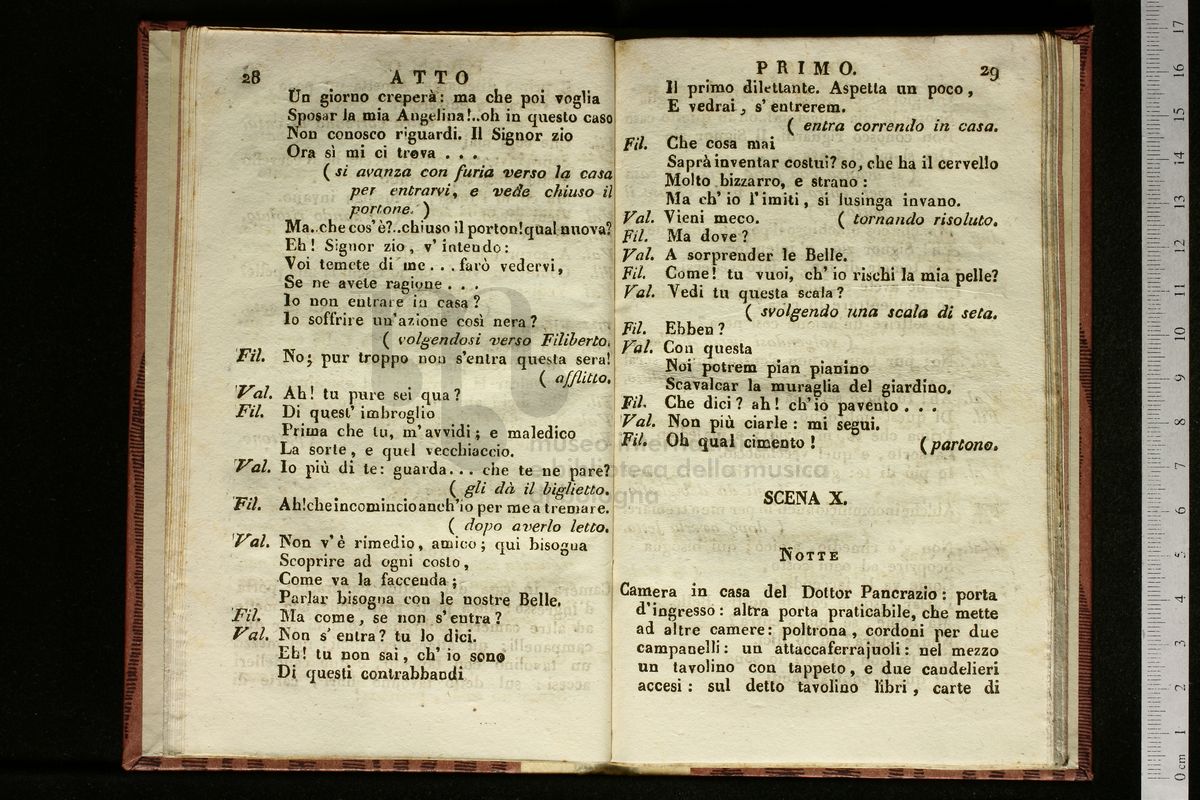 28 ATTO
Un giorno creperà: ma che poi voglia
Sposar la mia Angelina!..oh in questo caso
Non conosco riguardi. Il Signor zio
Ora sì mi ci trova . . .
( si avanza con furia verso la casa
per entrarvi, e vede chiuso il
portone. )
Ma..che cos'è?..chiuso il porton!qual nuova?
Eh! Signor zio, v'intendo:
Voi temete di me...farò vedervi,
Se ne avete ragione . . .
Io non entrare in casa?
Io soffrire un'azione così nera?
( volgendosi verso Filiberto.
Fil. No; pur troppo non s'entra questa sera!
( afflitto.
Val. Ah! tu pure sei qua?
Fil. Di quest' imbroglio
Prima che tu, m'avvidi; e maledico
La sorte, e quel vecchiaccio.
Val. Io più di te: guarda... che te ne pare?
( gli dà il biglietto.
Fil. Ah!che incomincio anch'io per me a tremare.
( dopo averlo letto.
Val. Non v'è rimedio, amico; qui bisogna
Scoprire ad ogni costo,
Come va la faccenda;
Parlar bisogna con le nostre Belle.
Fil. Ma come, se non s'entra?
Val. Non s'entra? tu lo dici.
Eh! tu non sai, ch' io sono
Di questi contrabbandi
PRIMO. 29
Il primo dilettante. Aspetta un poco,
E vedrai, s' entrerem.
( entra correndo in casa.
Fil. Che cosa mai
Saprà inventar costui? so, che ha il cervello
Molto bizzarro, e strano:
Ma ch' io l'imiti, si lusinga invano.
Val. Vieni meco. ( tornando risoluto.
Fil. Ma dove?
Val. A sorprender le Belle.
Fil. Come! tu vuoi, ch' io rischi la mia pelle?
Val. Vedi tu questa scala?
( svolgendo una scala di seta.
Fil. Ebben?
Val. Con questa
Noi potrem pian pianino
Scavalcar la muraglia del giardino.
Fil. Che dici? ah! ch'io pavento . . .
Val. Non più ciarle: mi segui.
Fil. Oh qual cimento! ( partono.
SCENA X.
NOTTE
Camera in casa del Dottor Pancrazio: porta
d'ingresso: altra porta praticabile, che mette
ad altre camere: poltrona, cordoni per due
campanelli: un attaccaferrajuoli: nel mezzo
un tavolino con tappeto, e due candelieri
accesi: sul detto tavolino libri, carte di
museo
biblioteca della musica
di bologna
0 cm 1 2 3 4 5 6 7 8 9 10 11 12 13 14 15 16 17